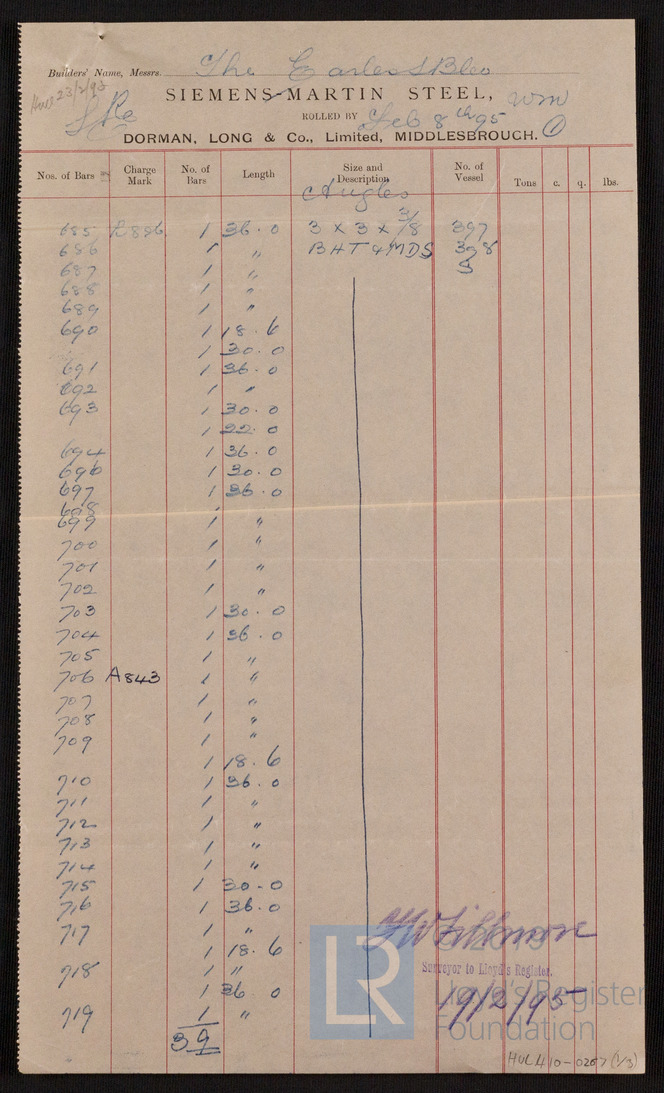 Builders' Name, Messrs. The Earles S B Co
Hull 23/2/95
SIEMENS-MARTIN STEEL, WM
ROLLED BY Feb 8th 95
DORMAN, LONG & Co., Limited, MIDDLESBROUGH.
Nos. of Bars Charge Mark No. of Bars Length Size and Description No. of Vessel Tons c. q. lbs.
Angles
685 R886 1 36.0 3 x 3 x 3/8 397
686 1 " BHT & MDS 398
687 1 " S
688 1 "
689 1 "
690 1 18.6
1 30.0
691 1 36.0
692 1 "
693 1 30.0
1 22.0
694 1 36.0
696 1 30.0
697 1 36.0
698 1
699 1 "
700 1 "
701 1 "
702 1 "
703 1 30.0
704 1 36.0
705 1 "
706 A843 1 "
707 1 "
708 1 "
709 1 "
1 18.6
710 1 36.0
711 1 "
712 1 "
713 1 "
714 1 "
715 1 30.0
716 1 36.0
717 1 "
1 18.6
718 1 "
1 36 0
719 1 "
39
Surveyor to Lloyd's Register.
19/2/95
LR
Lloyd's Register
Foundation
HUL410-0267 (1/3)